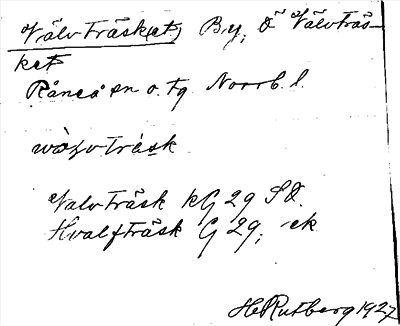 Välvträsk(et) By, å Välvträs-
ket
Råneå sn o. tg Norrb. l.
wòlvtrásk
Valvträsk kG 29 SÖ.
Hvalfträsk G 29; ek
H Rutberg 1927